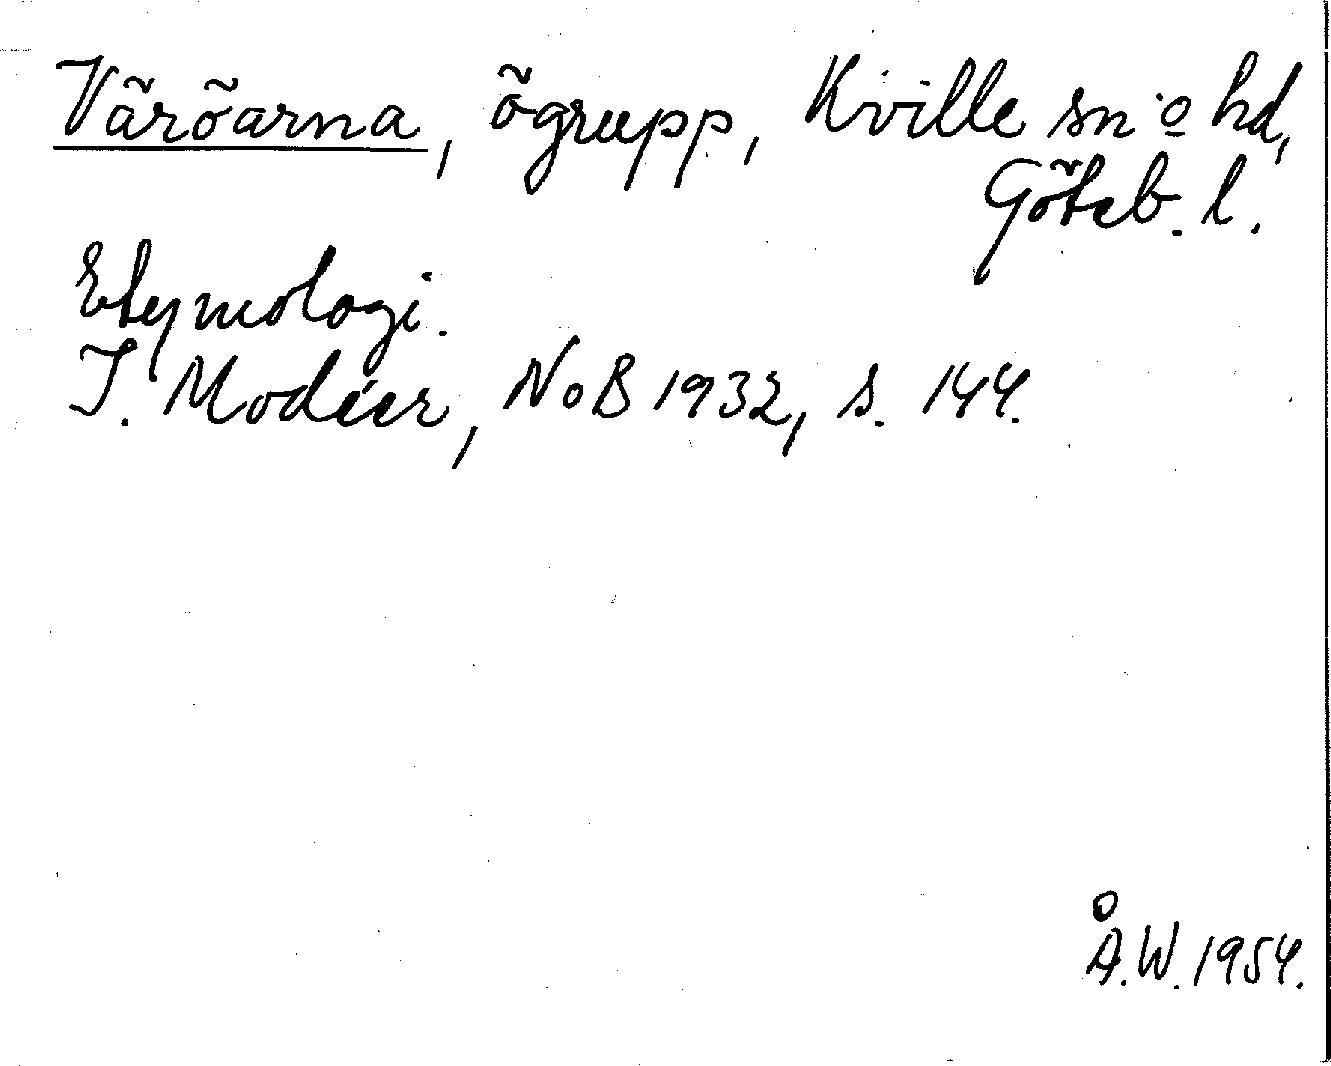 Väröarna, ögrupp, Kville sn o hd,
Göteb. l.
Etymologi.
I. Modéer, NoB 1932, s. 144.
Å.W. 1954.